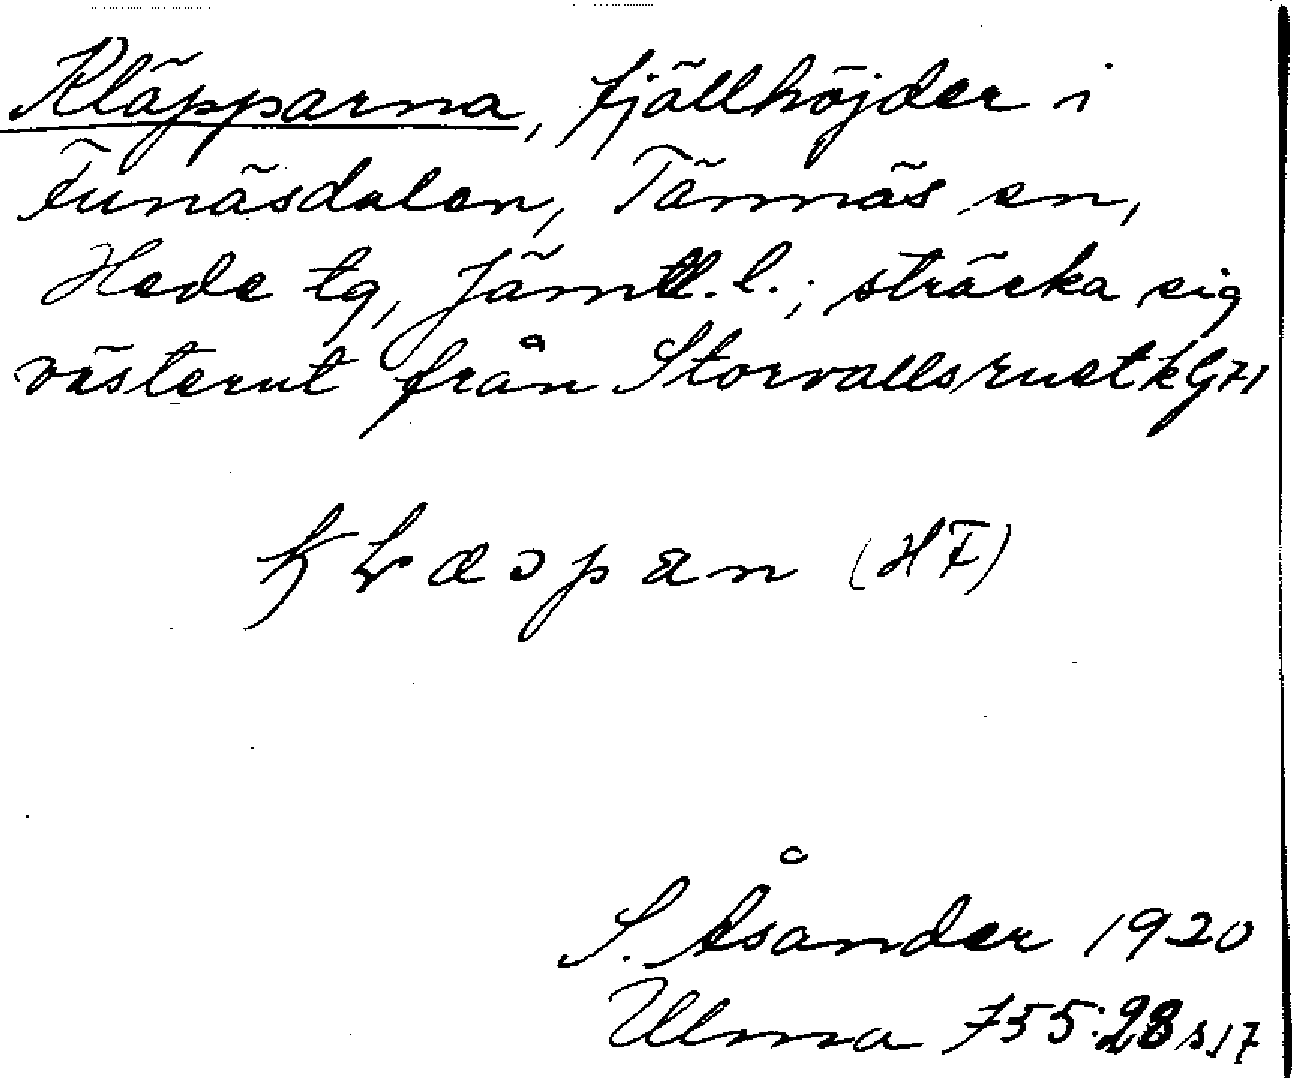 Kläpparna, fjällhöjder i
Funäsdalen, Tännäs sn,
Hede tg, Jämtl. l.; sträcka sig
västerut från Storvallsruet
(HF)
S. Åsander 1920
Ulma 755:28 s. 17